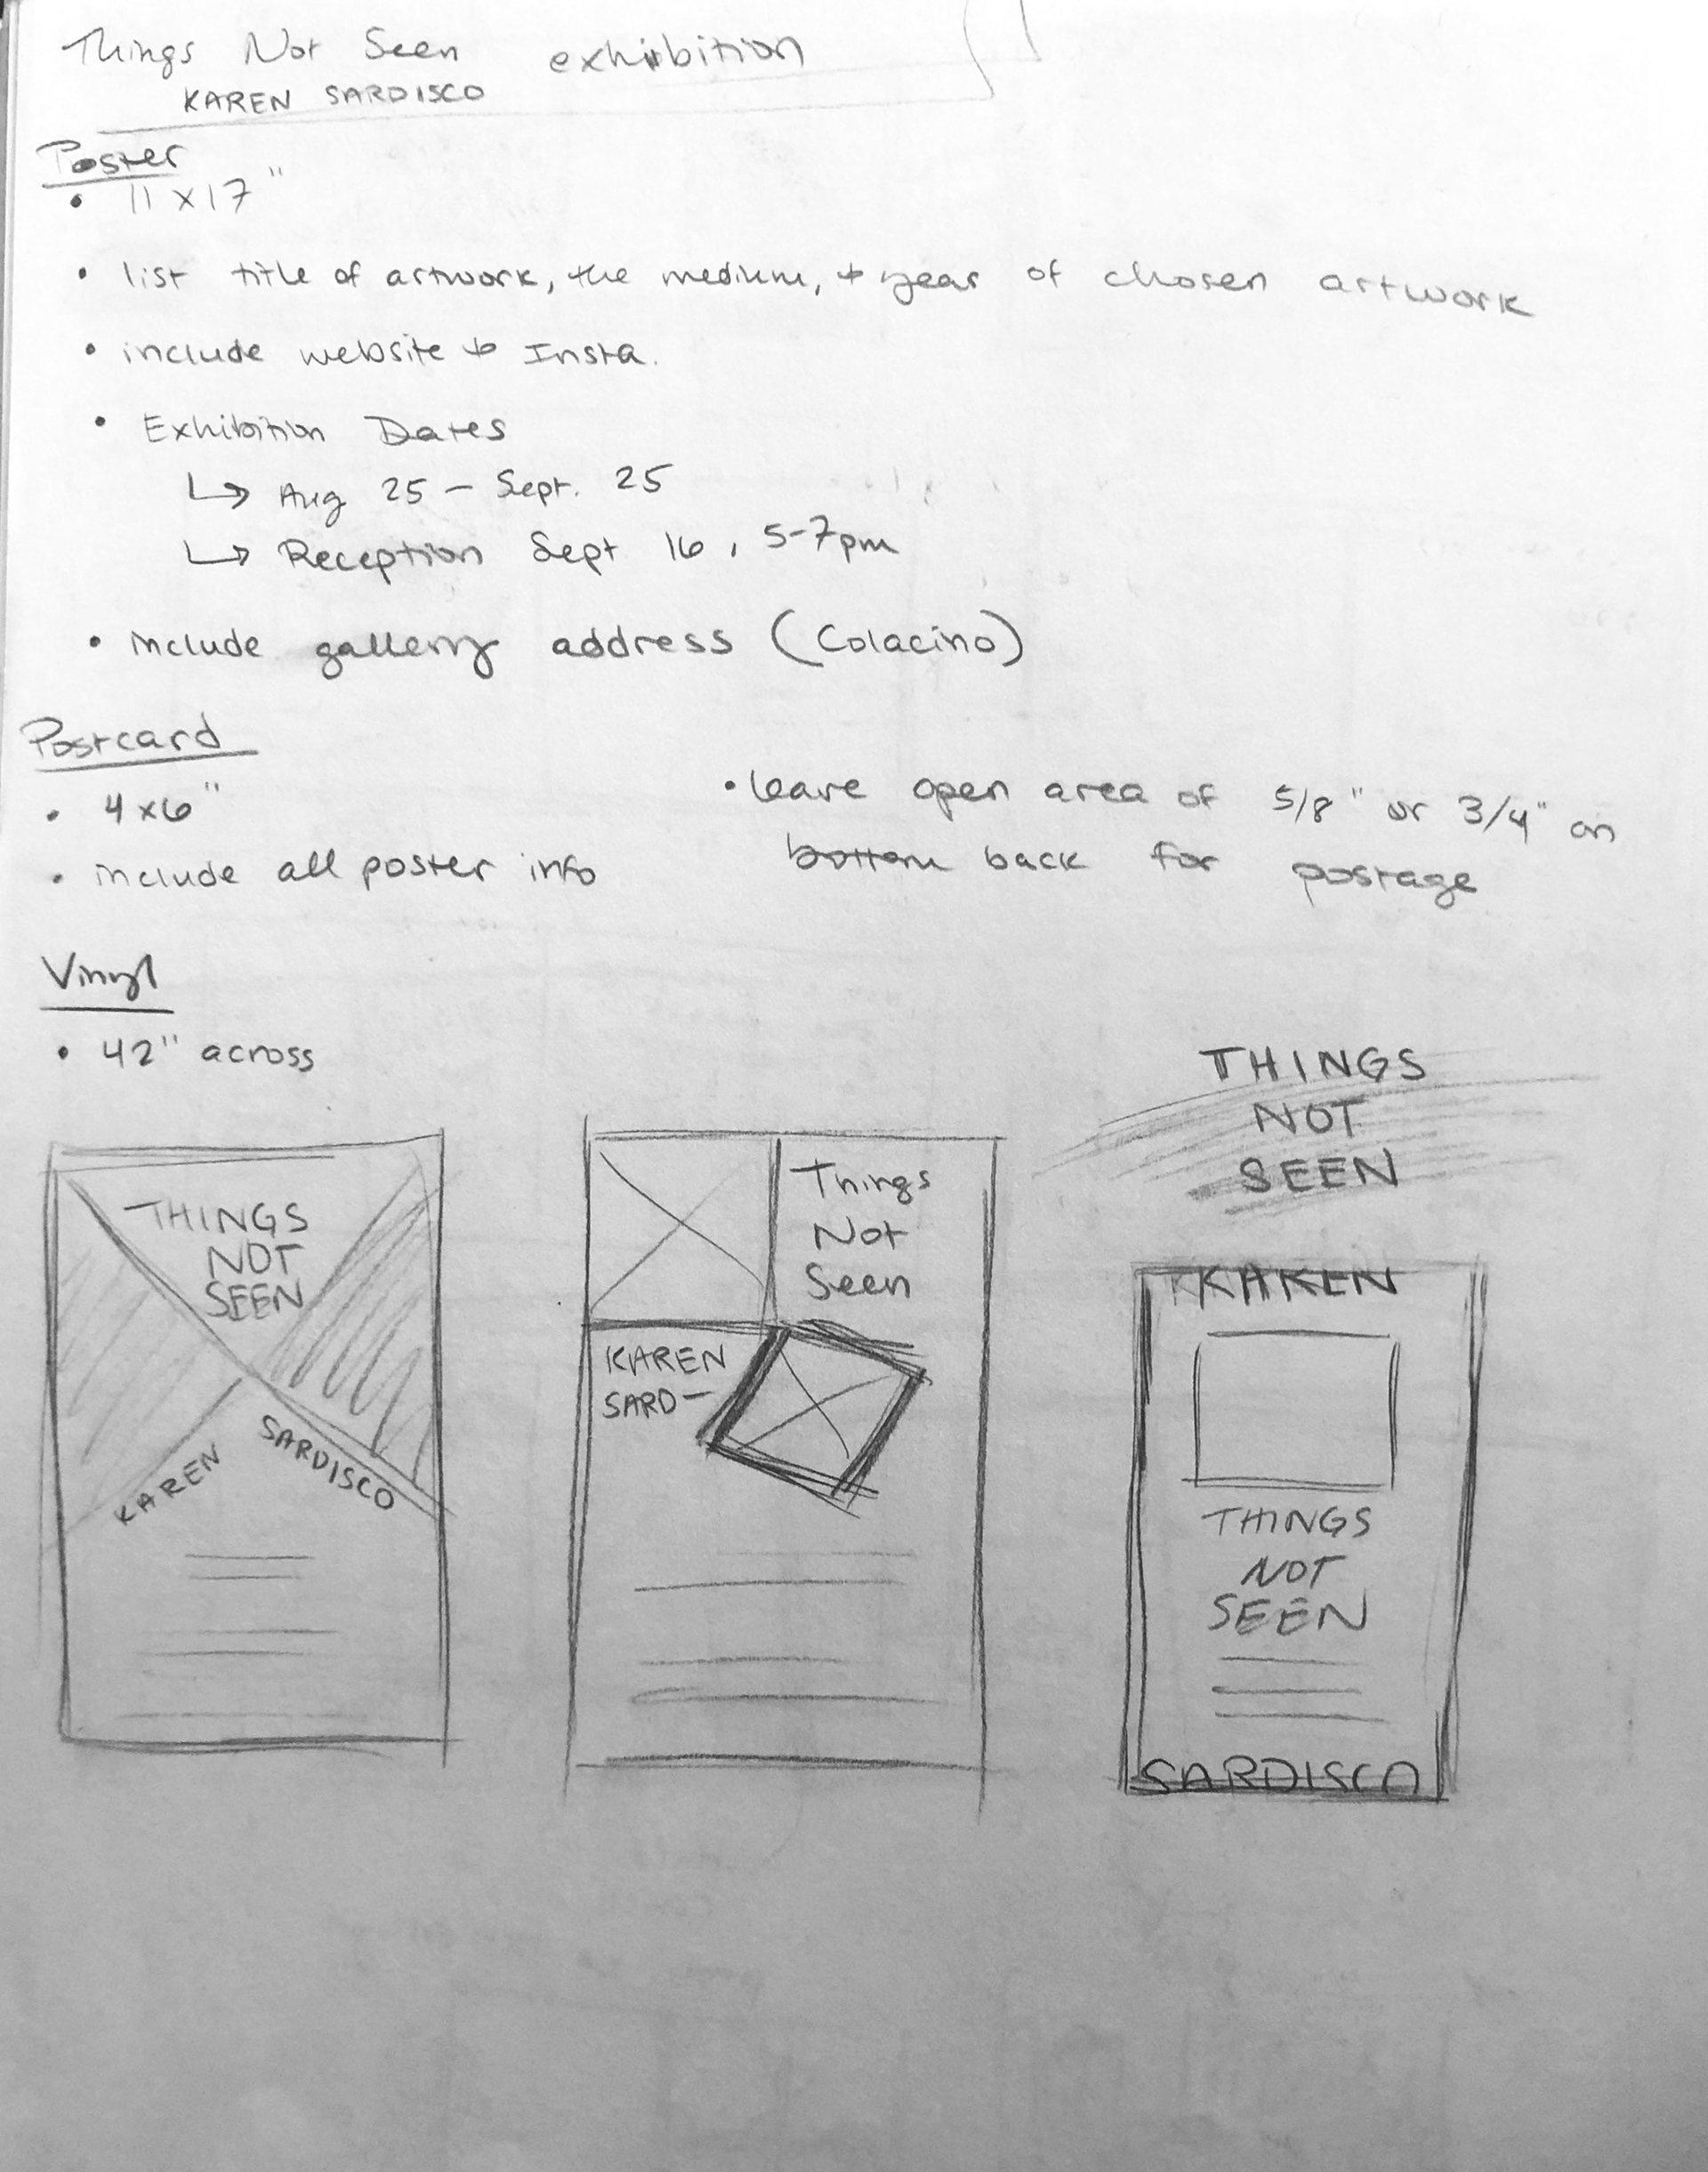 Things Not Seen exhibition
KAREN SARDISCO
Poster
• 11 x 17"
• list title of artwork, the medium, + year of chosen artwork
• include website + Insta.
• Exhibition Dates
↳ Aug 25 - Sept. 25
↳ Reception Sept 16, 5-7pm
• include gallery address (Colacino)
Postcard
• 4 x 6"
• include all poster info
• leave open area of 5/8" or 3/4" on
bottom back for postage
Vinyl
• 42" across
THINGS
NOT
SEEN
KAREN
SARDISCO
Things
Not
Seen
KAREN
SARD-
THINGS
NOT
SEEN
KAREN
THINGS
NOT
SEEN
SARDISCO